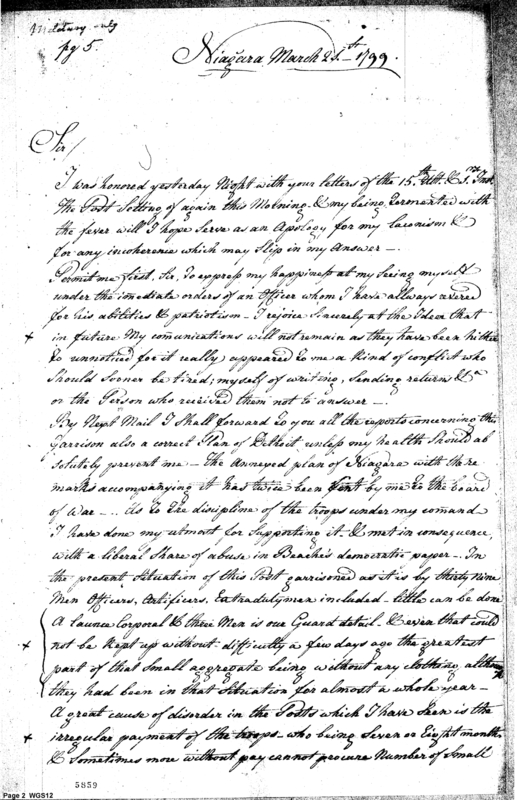 Military
pg 5.
Niagara March 21st 1799.
Sir/
I was honored yesterday Night with your letters of the 15th Ult. & 1st Inst
The Post Setting of again this Morning & my being tormented with
the fever will I hope Serve as an Apology for my laconism &
for any incoherence which may Slip in my Answer —.
Permit me first, Sir, to express my happiness at my Seing myself
under the imediate orders of an Officer whom I have allways avered
for his abilities & patriotism — I rejoice Sincerely at the Idea that
in future My comunications will not remain as they have been hither
to unnoticed, for it really appeared to me a kind of conflict who
Should Sooner be tired; myself of writing, Sending return &ca
or the Person who received them not to answer —.
By Next Mail I Shall forward to you all the reports concerning this
Garrison also a correct Plan of Detroit unless my health Should ab
solutely prevent me — The Annexed plan of Niagara with the re
marks accompanying it has twice been Sent by me to the board
of War — .. As to the discipline of the troops under my comand
I have done my utmost for Supporting it, & met in consequence,
with a liberal Share of abuse in Beache's democratic paper —. In
the present Situation of this Post garrisoned as it is by thirty Nine
Men Officers, Artificers, Extradutymen included — little can be done
A Launce Corporal & three Men is our Guard detail. & even that could
not be Kept up without difficulty a few days ago the greatest
part of that Small aggregate being without any clothing, altho
they had been in that Situation for almost a whole year —
A great cause of disorder in the Posts which I have Seen is the
irregular payment of the troops — who being Seven or Eight months
& Sometimes more without pay cannot procure Number of Small
5859
Page 2 WGS12